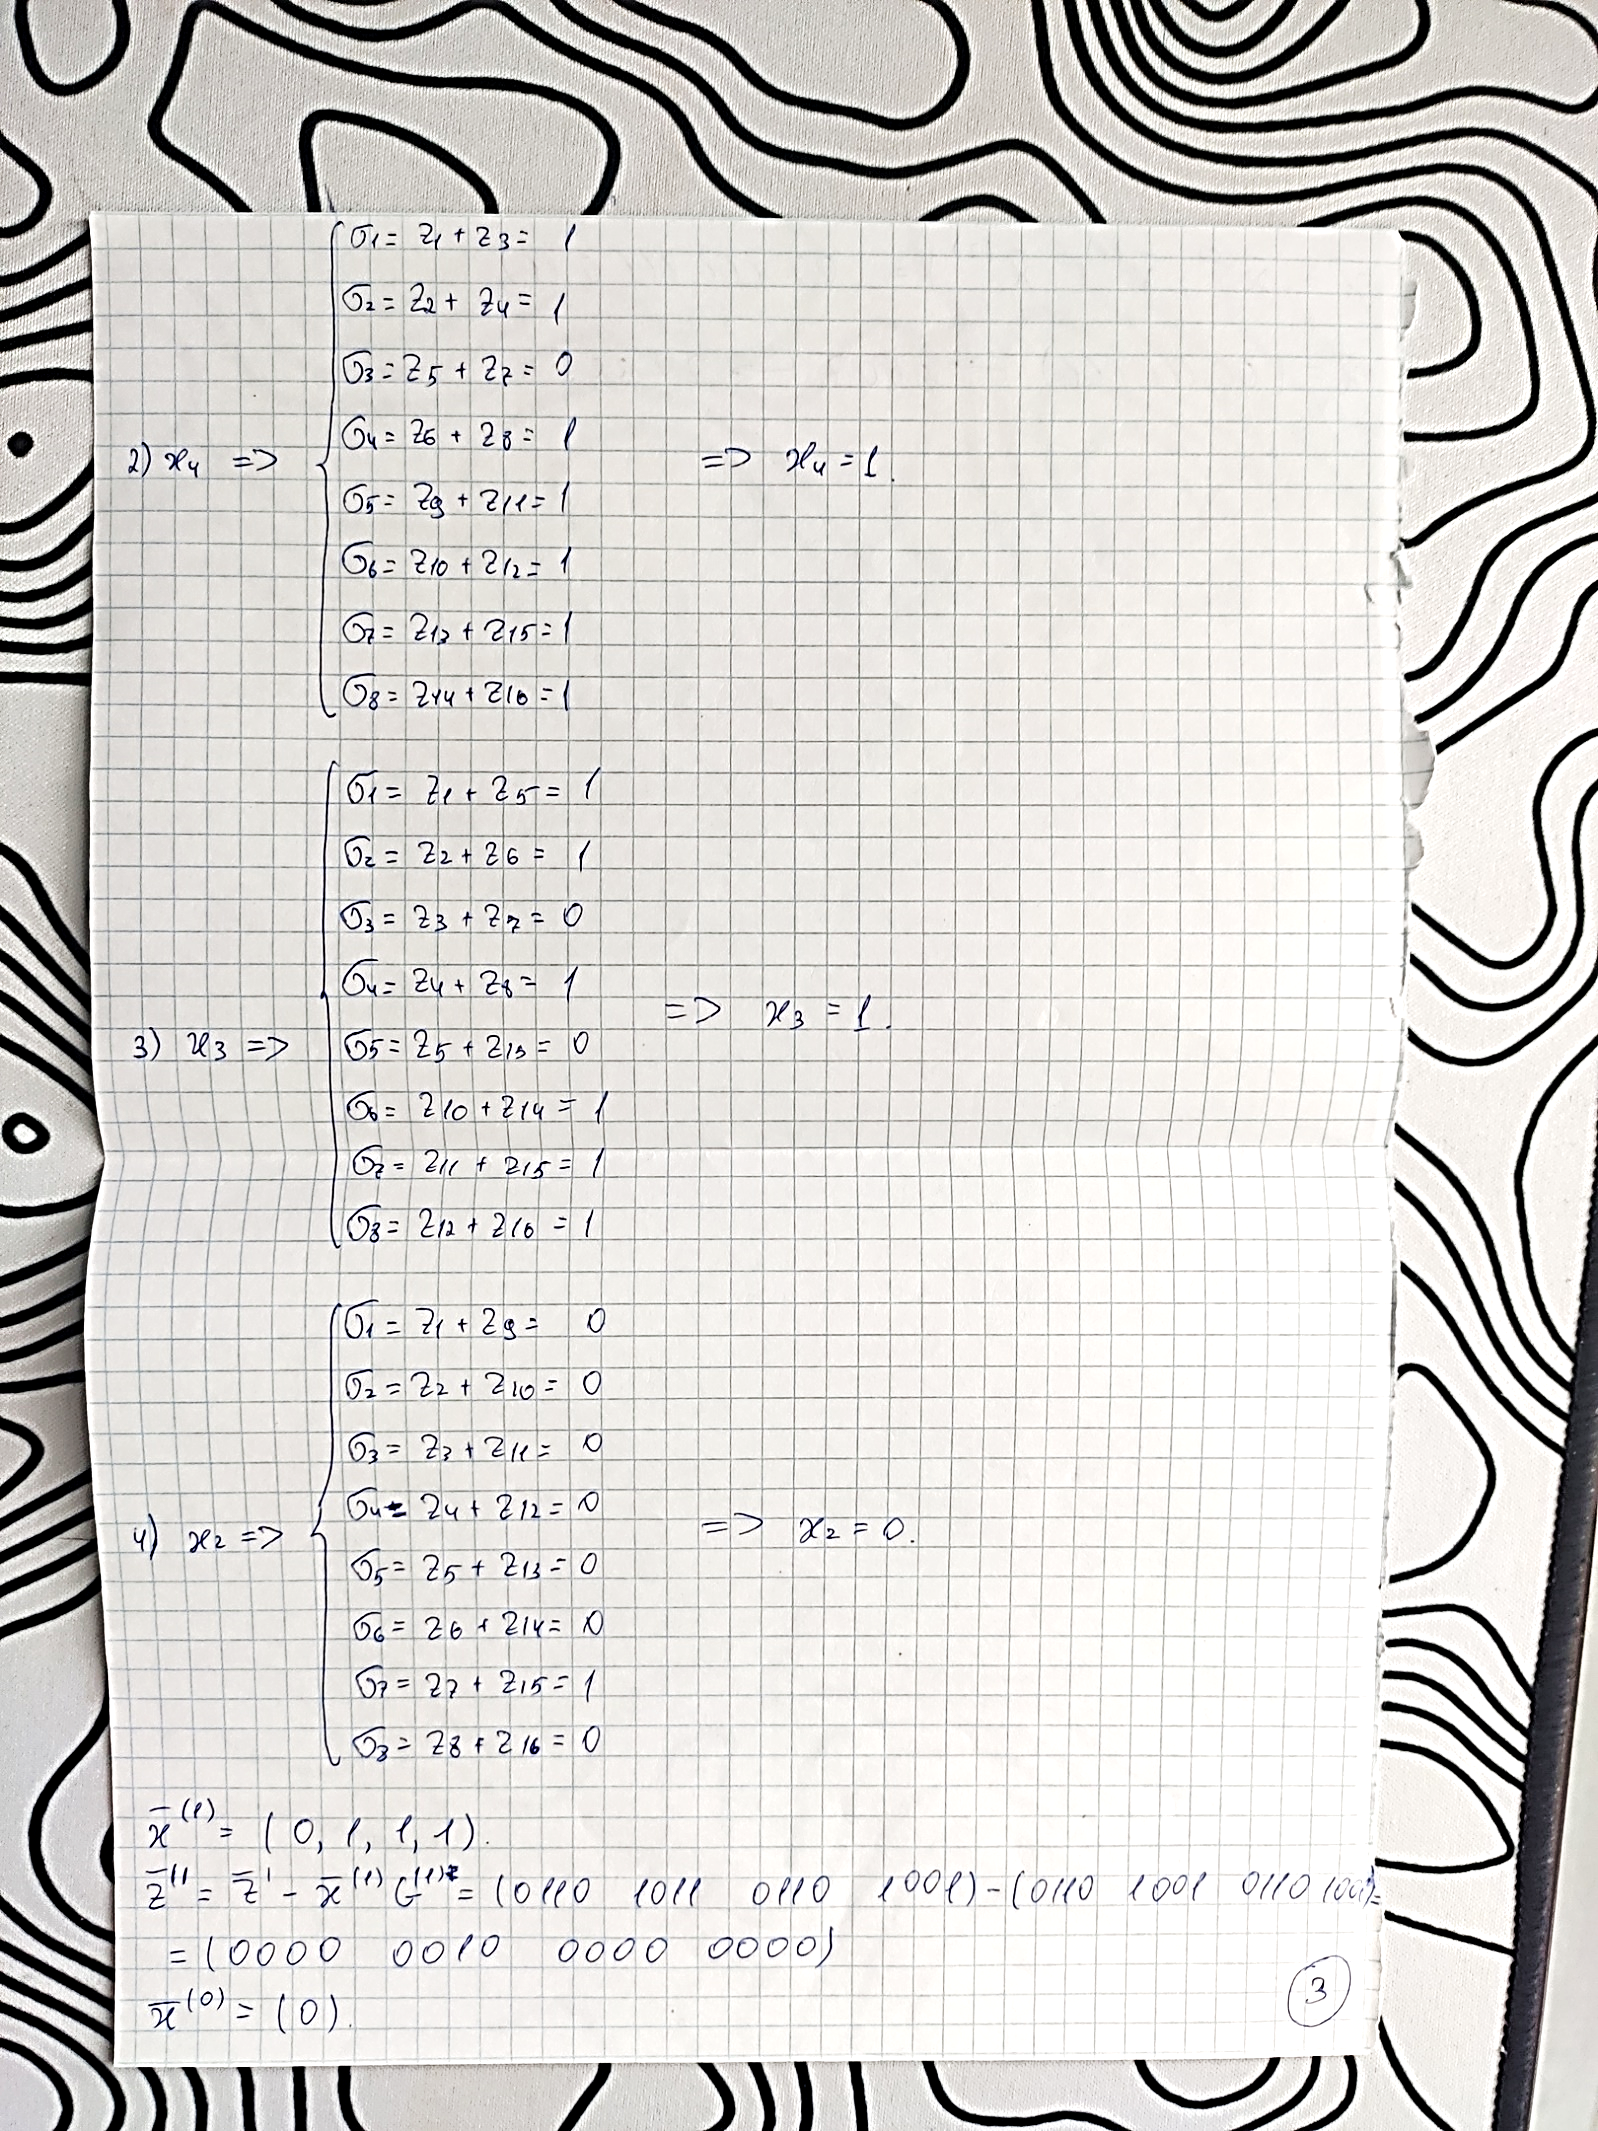 σ1 = z1 + z3 = 1
σ2 = z2 + z4 = 1
σ3 = z5 + z7 = 0
σ4 = z6 + z8 = 1
2) x4 => => x4 = 1.
σ5 = z9 + z11 = 1
σ6 = z10 + z12 = 1
σ7 = z13 + z15 = 1
σ8 = z14 + z16 = 1
σ1 = z1 + z5 = 1
σ2 = z2 + z6 = 1
σ3 = z3 + z7 = 0
σ4 = z4 + z8 = 1
=> x3 = 1.
3) x3 => σ5 = z5 + z13 = 0
σ6 = z10 + z14 = 1
σ7 = z11 + z15 = 1
σ8 = z12 + z16 = 1
σ1 = z1 + z9 = 0
σ2 = z2 + z10 = 0
σ3 = z3 + z11 = 0
σ4 = z4 + z12 = 0
4) x2 => => x2 = 0.
σ5 = z5 + z13 = 0
σ6 = z6 + z14 = 0
σ7 = z7 + z15 = 1
σ8 = z8 + z16 = 0
x̄^(1) = (0, 1, 1, 1).
z̄'' = z̄' - x̄^(1) G^(1) = (0110 1011 0110 1001) - (0110 1001 0110 1001) =
= (0000 0010 0000 0000)
x̄^(0) = (0).
3